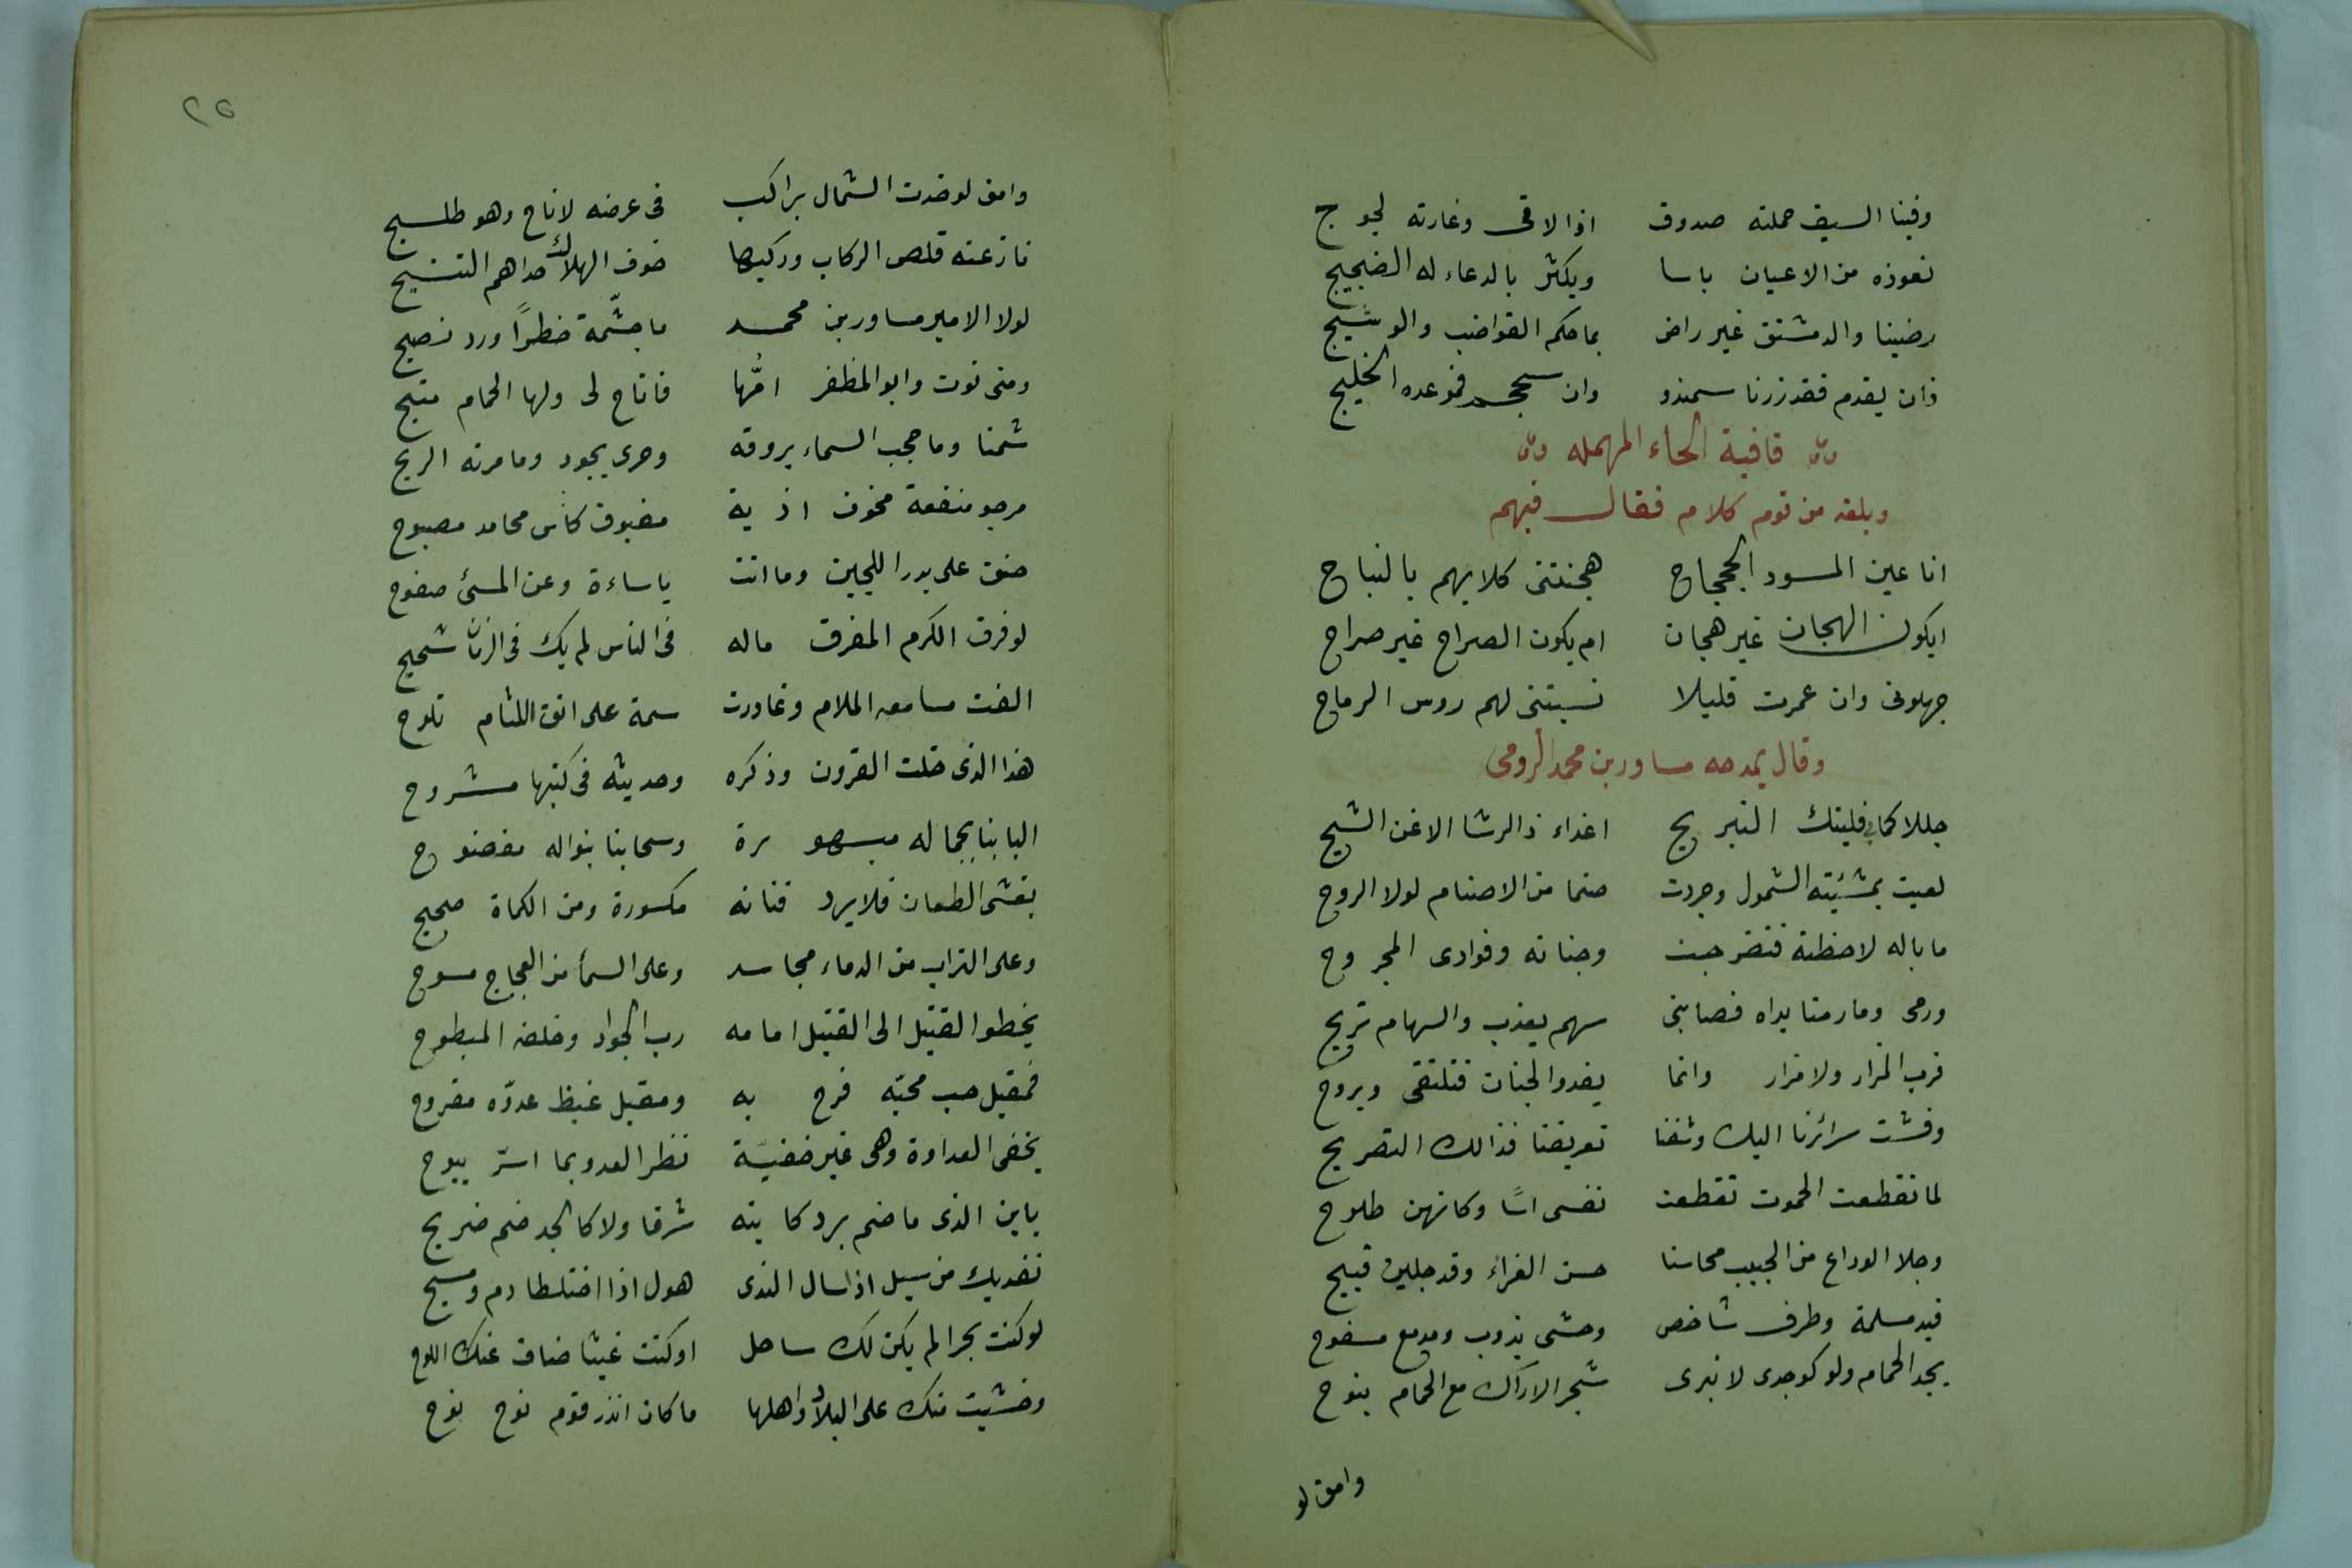 وفينا السيف حملته صدوق اذا لاقى وغارته لجوج
نعوذه من الاعيان باسا ويكثر بالدعاء له الضجيج
رضينا والدمشتق غير راض بما حكم القواضب والوشيج
فان يقدم فقد زرنا سمندو وان يحجم فموعده الخليج
قافية الحاء المهمله
وبلغه من قوم كلام فقال فيهم
انا عين المسود الجحجاح هجنتنى كلابهم بالنباح
ايكون الهجان غير هجان ام يكون الصراح غير صراح
جهلونى وان عمرت قليلا نسبتنى لهم روس الرماح
وقال يمدحه مساور بن محمد الرومى
جللا كمابى فليتك التبريح اغذاء ذالرشا الاغن الشيح
لعبت بمشيته الشمول وجردت صنما من الاصنام لولا الروح
ما باله لاحظته فتضرجت وجناته وفوادى المجروح
ورمى وما رمتا يداه فصابنى سهم يعذب والسهام تريح
قرب المزار ولا مزار وانما يغدوا لجنان فتلتقى ويروح
وفشت سرائرنا اليك وشفنا تعريضنا فذالك التصريح
لما تقطعت الحموت تقطعت نفسى اسًا وكانهن طلوح
وجلا الوداع من الحبيب محاسنا حسن العزاء وقد جلين قبيح
فيد مسلمة وطرف شاخص وحشى يذوب ومدمع مسفوح
يجد الحمام ولو كوجدى لانبرى شجر الاراك مع الحمام ينوح
وامق لو
٢٥
وامق لو خدت الشمال براكب فى عرضه لاناخ وهو طليح
نازعته قلص الركاب وركبها خوف الهلاك حداهم التسبيح
لولا الامير مساور بن محمد ما جشّمة خطرًا ورد نصيح
ومتى نوت وابو المظفر امّها فاتاح لى ولها الحمام متيح
شمنا وما حجب السماء بروقه وحرى يجود وما مرته الريح
مرجو منفعة مخوف اذية مغبوق كاس محامد مصبوح
حنق على بدر اللجين وما اتت باساءة وعن المسئ صفوح
لو فرق الكرم المفرق ماله فى الناس لم يك فى الزمان شحيح
الغت مسامعه الملام وغادرت سمة على انف اللئام تلوح
هذا الذى خلت القرون وذكره وحديثه فى كتبها مشروح
البابنا بجماله مبهورة وسحابنا بنواله مفضوح
يغشى الطعان فلا يرد قناته مكسورة ومن الكماة صحيح
وعلى التراب من الدماء مجاسد وعلى السما من العجاج مسوح
يخطوا القتيل الى القتيل امامه رب الجواد وخلفه المبطوح
فمقيل حب محبّه فرح به ومقيل غيظ عدوّه مقروح
يخفى العداوة وهى غير خفيّة نظر العدو بما اسرّ يبوح
يابن الذى ما ضم برد كابنه شرفا ولا كالجد ضم ضريح
نفديك من سيل اذا سال الندى هول اذا اختلطا دم ومسيح
لو كنت بحرا لم يكن لك ساحل او كنت غيثا ضاق عنك اللوح
وخشيت منك على البلاد واهلها ما كان انذر قوم نوح نوح